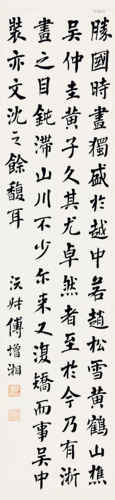 勝國時畫獨盛於越中若趙松雪黃鶴山樵
吳仲圭黃子久其尤卓然者至於今乃有浙
畫之目鈍滯山川不少尒來又復矯而事吳中
裝亦文沈之餘馥耳
沅叔傅增湘